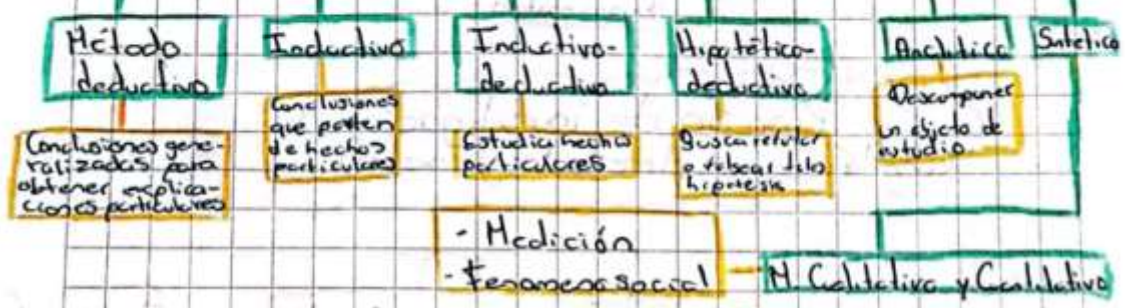 Método
deductivo
Conclusiones gene-
ralizadas para
obtener explica-
ciones particulares
Inductivo
Conclusiones
que parten
de hechos
particulares
Inductivo-
deductivo
Estudia hechos
particulares
Hipotético-
deductivo
Busca refutar
o falsear
hipotesis
Analítico
Descomponer
un objeto de
estudio
Sintetico
- Medición
- Fenomeno social
M. Cualitativo y Cuantitativo